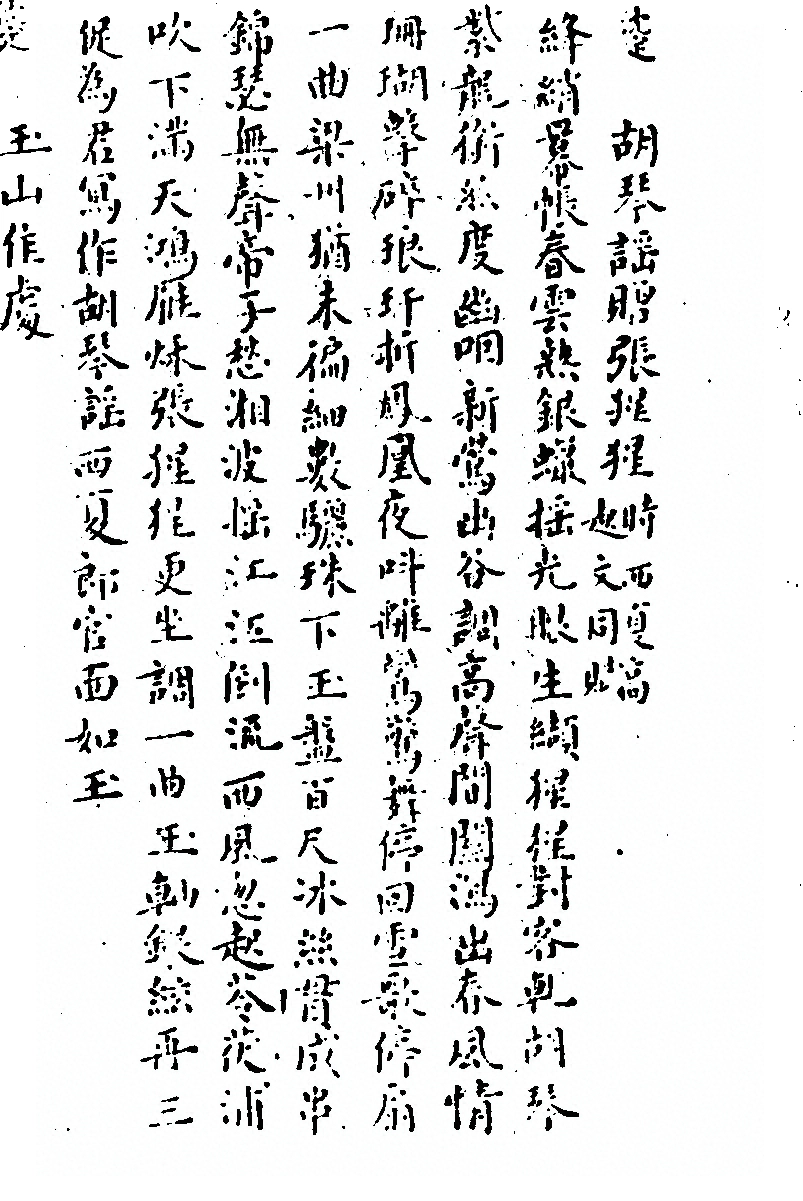 胡琴謠贈張猩猩時西夏高
起文同賦
絳綃幕帳春雲熱銀蠟摇光眼生纈猩猩對客軋胡琴
紫龍銜絲度幽咽新鶯出谷調高聲間關瀉出春風情
珊瑚擊碎琅玕折鳳凰夜叫離鸞驚舞停回雪歌停扇
一曲梁州猶未徧細數驪珠下玉盤百尺冰絲貫成串
錦瑟無聲帝子愁湘波揺江江倒流西風忽起苓茨浦
吹下滿天鴻雁秋張猩猩更坐調一曲玉軸銀絃再三
促為君寫作胡琴謠西夏郎官面如玉
玉山作處